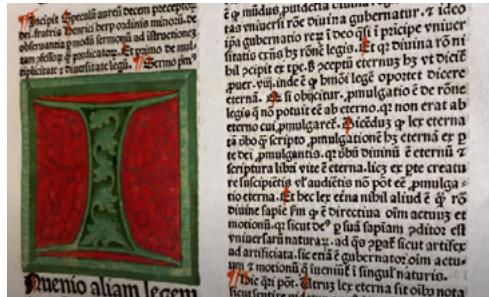 ¶Incipit Speculū aureū decem preceptoꝝ
dei. fratris Henrici herp ordinis minorū. de
obseruantia ꝑ modū sermonū ad īstructionez
tam ꝯfessoꝝ ꝙ̃ predicatoꝝ. Et primo de mul
tiplicitate ⁊ diuersitate legū. ¶Sermo prim⁹
I
Nuenio aliam legem
ꝙ mūdus, ꝓuidētia diuina gubernatur. ⁊ ideo
ip̄a gubernatio reꝝ ī deo q̄si ī pricipe vniuer
sitatis exn̄s hꝫ rōnē legis. Et qꝛ diuina rō ni
bil ꝯcipit ex tꝑe. sꝫ ꝯceptū eternuꝫ hꝫ vt dicit̄
ꝓuer. viij. inde ē ꝙ hm̄ōi legē oportet dicere
eternā. Et si obijcitur, ꝓmulgatio ē de rōne
legis q̄ nō potuit eē ab eterno. qꝛ non erat ab
eterno cui ꝓmulgaret̄. Dicēduꝫ ꝙ lex eterna
tā ꝟbo ꝙ̃ scripto ꝓmulgationē hꝫ eternā ex ꝑ
te dei ꝓmulgantis. qꝛ ꝟbū diuinū ē eternū ⁊
scriptura libri vite ē eterna. licꝫ ex ꝑte creatu
re suscipiētis vl̓ audiētis nō pōt eē ꝓmulga
tio eterna. Et hec lex etna nihil aliud ē ꝙ̃ rō
diuine sapiē fm̄ ꝙ ē directiua oīm actuuꝫ et
motionū. qꝛ sicut de⁹ ꝑ suā sapiam ꝯditor est
vniuersaꝝ naturaꝝ. ad quas ꝯꝑat̄ sicut artifex
ad artificiata. sic etiā ē gubernator oīm actu
um ⁊ motionū q̄ iueniūt̄ ī singul̓ naturis.
¶Sic q̄ri pōt. Utruꝫ lex eterna sit oībꝰ nota